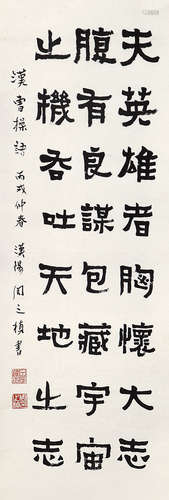 夫英雄者胸懷大志
腹有良謀包藏宇宙
之機吞吐天地之志
漢曹操語 丙戌仲春 漢陽 之楨書